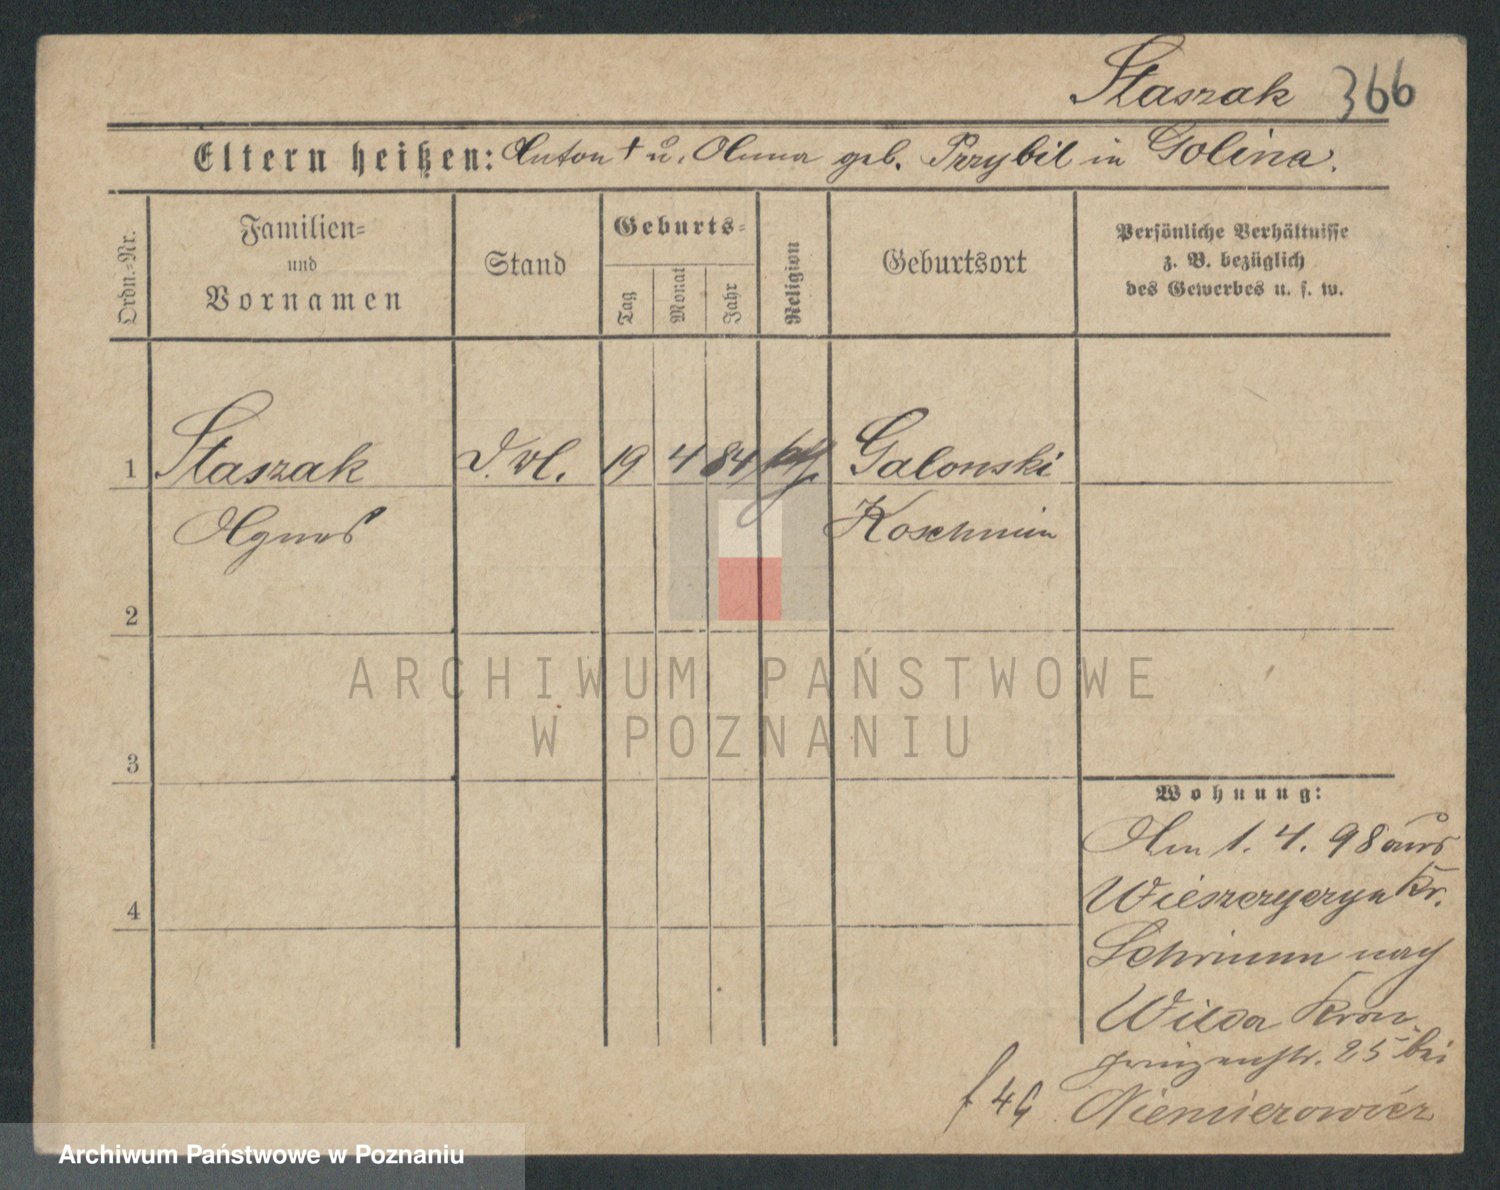 Staszak 366
Eltern heißen: Anton † u. Anna geb. Przybil in Golina.
Ordn.-Nr.
Familien-
und
Vornamen
Stand
Geburts-
Tag
Monat
Jahr
Religion
Geburtsort
Persönliche Verhältnisse
z. B. bezüglich
des Gewerbes u. s. w.
1 Staszak 19 4 84 kth. Galonski
Agnes Koschmin
2
3
4
Wohnung:
Am 1. 4. 98 aus
Wieszczyczyn Kr.
Schrimm nach
Wilda Kron-
prinzenstr. 25 bei
Niemierowicz
ARCHIWUM PAŃSTWOWE
W POZNANIU
Archiwum Państwowe w Poznaniu